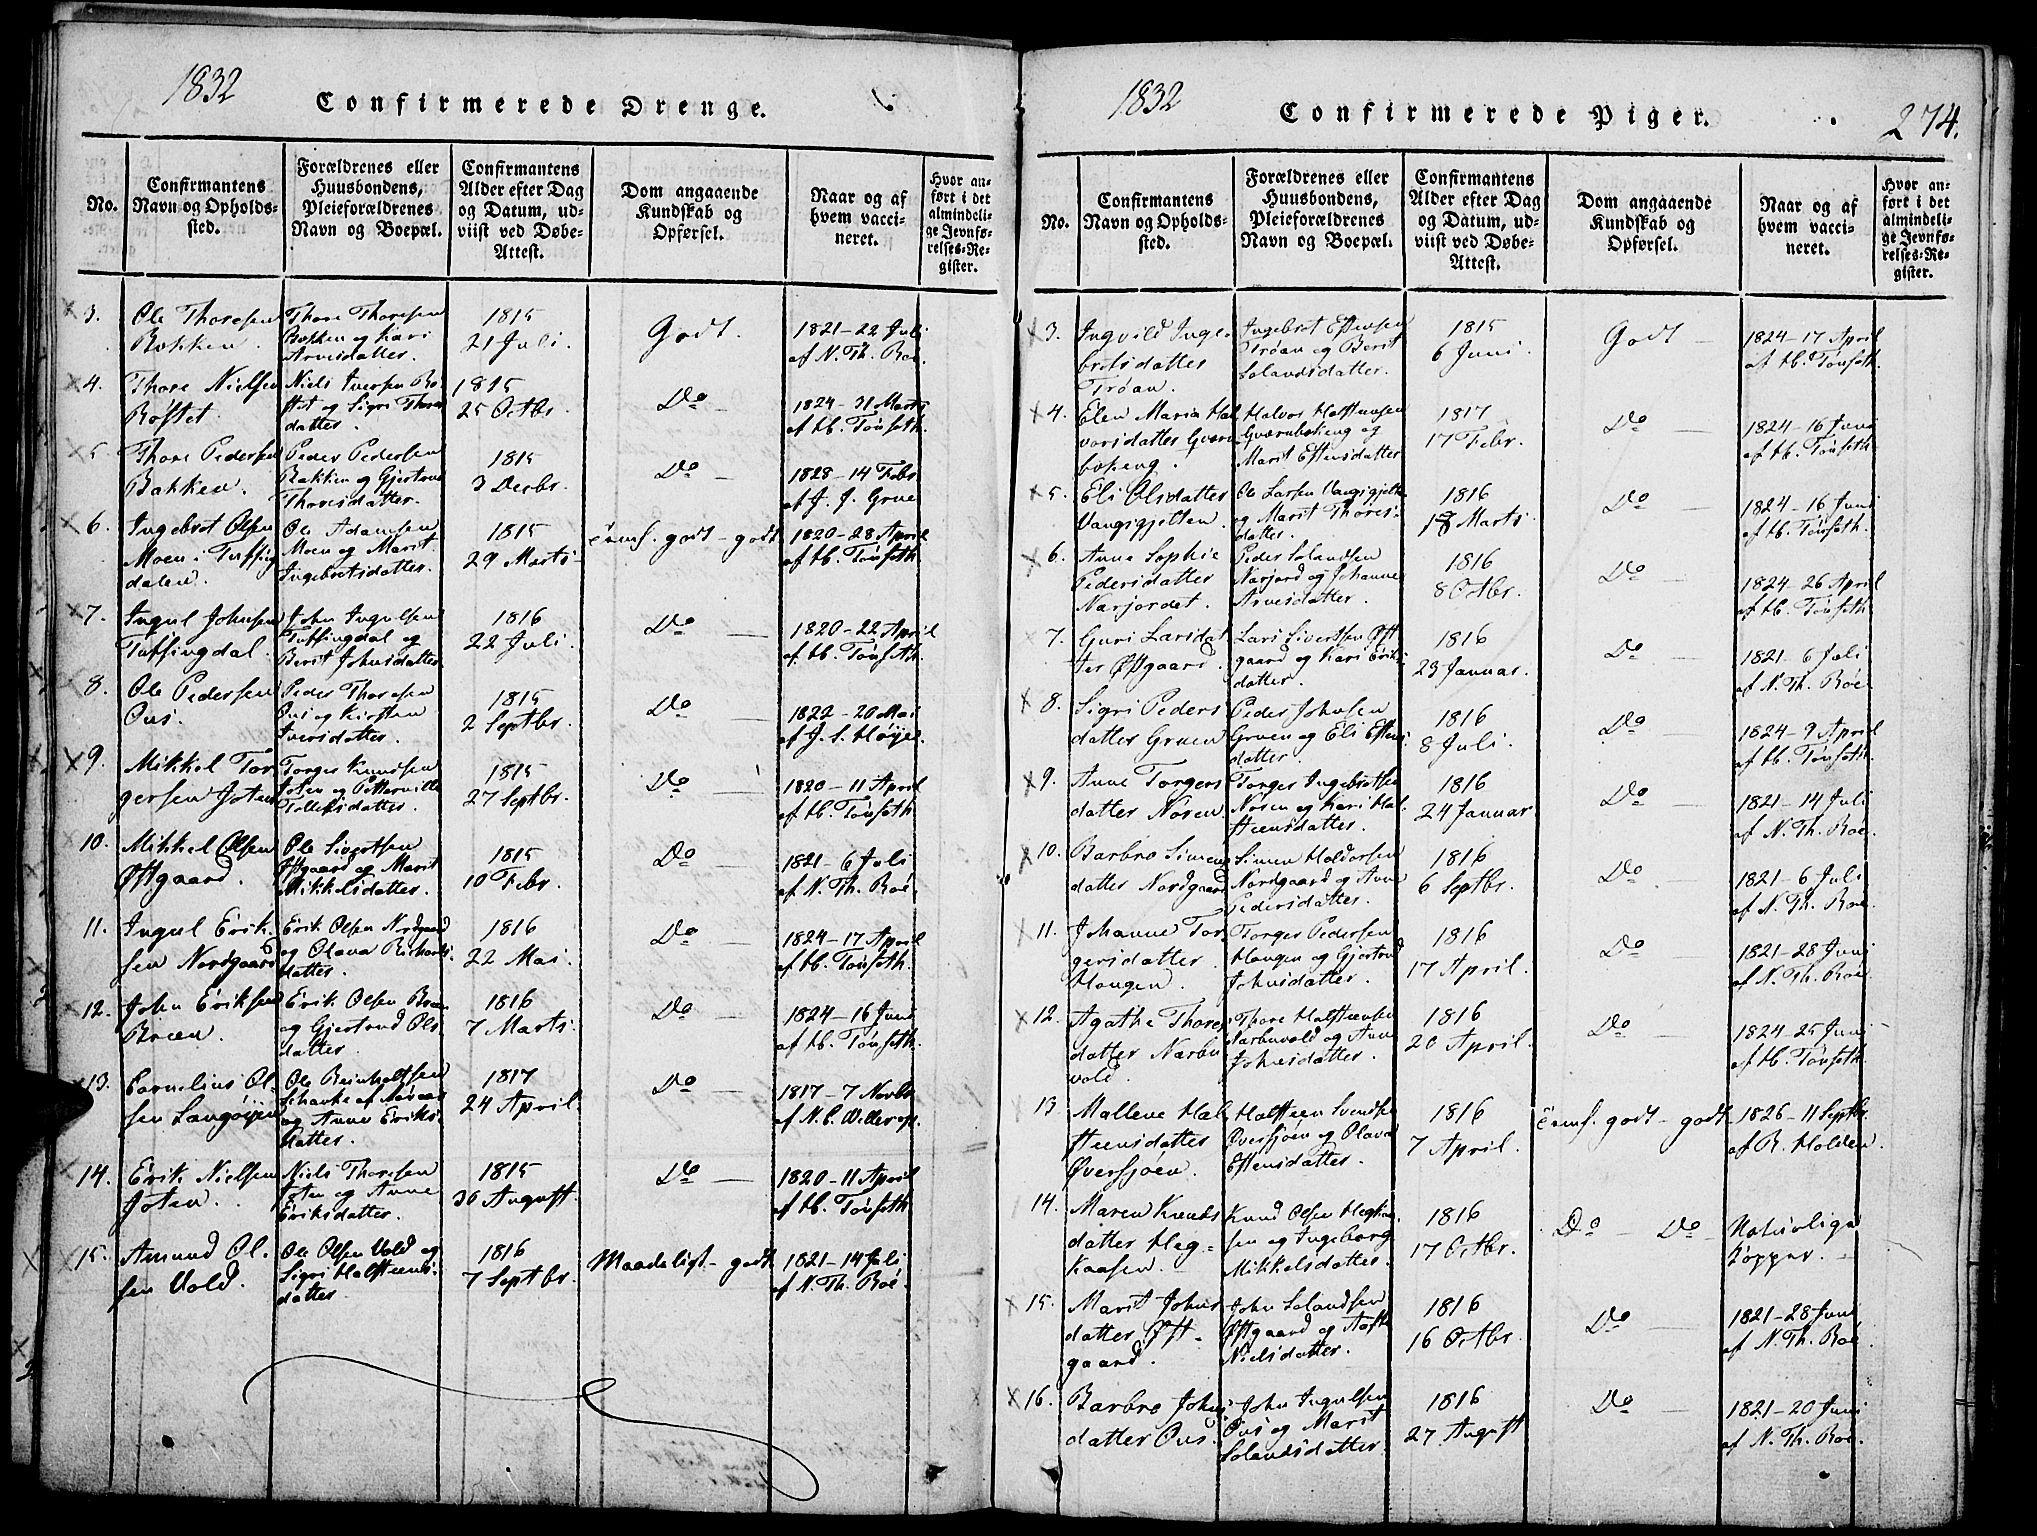 1832
Confirmerede Drenge.
No.
Confirmantens
Navn og Opholds-
sted.
Forældrenes eller
Huusbondens,
Pleieforældrenes
Navn og Boepæl.
Confirmantens
Alder efter Dag
og Datum, ud-
viist ved Døbe-
Attest.
Dom angaaende
Kundskab og
Opførsel.
Naar og af
hvem vacci-
neret.
Hvor an-
ført i det
almindeli-
ge Jevnfø-
relses-Re-
gister.
3.
Ole Thoresen
Bakken.
Thore Thoresen
Bakken og Kari
Arnesdatter.
1815
21 Juli.
Godt.
1821-22 Juli
af N. Th. Roe.
4.
Thore Nielsen
Røstet
Niels Iversen Rø-
stet og Sigri Thore
datter.
1815
25 Octbr.
Do
1824-31 Marts
af H. Tønseth.
5.
Thore Pedersen
Bakken.
Peder Pedersen
Bakken og Gjertrud
Thoresdatter.
1815
3 Decbr.
Do
1828-14 Febr
af J. J. Grue
6.
Ingebret Olsen
Moen i Tuffing
dalen.
Ole Adamsen
Moen og Marit
Ingebretsdatter.
1815
29 Marts
temf. godt - godt
1820-28 April
af H. Tønseth.
7.
Ingul Johnsen
Tuffingdal.
John Ingulsen
Tuffingdal og
Berit Johnsdatter
1816
22 Juli.
Do
1820-22 April
af H. Tønseth.
8.
Ole Pedersen
Ous.
Peder Thoresen
Ous og Kirsten
Iversdatter.
1815
2 Septbr.
Do
1822-20 Mai
af J. S. Høye.
9.
Mikkel Tor
gersen Joten
Torger Knudsen
Joten og
Tollefsdatter.
1815
27 Septbr.
Do
1820-11 April
af H. Tønseth.
10.
Mikkel Olsen
Østgaard.
Ole Sivertsen
Østgaard og Marit
Mikkelsdatter.
1815
10 Febr.
Do
1821-6 Juli
af N. Th. Roe.
11.
Ingul Erik-
sen Nordgaard
Erik Olsen Nordgaard
og Olava Richards
datter.
1816
22 Mai.
Do
1824-17 April
af H. Tønseth.
12.
John Eriksen
Bræen.
Erik Olsen Bræn
og Gjertrud Ols
datter.
1816
7 Marts.
Do
1824-16 Juni
af H. Tønseth.
13.
Cornelius Ol-
sen Langøijen
Ole Reinholtsen
Schanke af Nøraas
og Anne Eriks-
datter.
1817
24 April
Do
1817-7 Novbr.
af N. C. Willerup.
14.
Erik Nielsen
Joten.
Niels Thoresen
Joten og Anne
Eriksdatter.
1815
30 August.
Do
1820-11 April
af H. Tønseth.
15.
Amund Ol-
sen Vold.
Ole Olsen Vold og
Sigri Halsteens-
datter
1816
7 Septbr.
Maadeligt - godt
1821-14 Juli
af N. Th. Roe.
1832
Confirmerede Piger.
274.
No.
Confirmantens
Navn og Opholds-
sted.
Forældrenes eller
Huusbondens,
Pleieforældrenes
Navn og Boepæl.
Confirmantens
Alder efter Dag
og Datum, ud-
viist ved Døbe-
Attest.
Dom angaaende
Kundskab og
Opførsel.
Naar og af
hvem vacci-
neret.
Hvor an-
ført i det
almindeli-
ge Jevnfø-
relses-Re-
gister.
3.
Ingvild Inge-
bretsdatter
Trøan.
Ingebret Estensen
Trøan og Berit
Solandsdatter.
1815
6 Juni.
Godt
1824-17 April
af H. Tønseth.
4.
Elen Maria Hal
vorsdatter Qværn
bokeng.
Halvor Halstensen
Qværnbokeng og
Marit Estensdatter
1817
17 Febr.
Do
1824-16 Juni
af H. Tønseth.
5.
Eli Olsdatter
Vangsgjetten.
Ole Larsen Vangsgjetten
og Marit Thores-
datter.
1816
Marts
Do
1824-16 Juni
af H. Tønseth.
6.
Anne Sophie
Pedersdatter
Narjordet.
Peder Solandsen
Narjord og Johanne
Arnesdatter.
1816
8 Octbr.
Do
1824-26 April
af H. Tønseth.
7.
Guri Larsdat
ter Østgaard.
Lars Sivertsen Øst
gaard og Kari Eriks
datter.
1816
23 Januar.
Do
1821-6 Juli
af N. Th. Roe
8.
Sigri Peders
datter Gruen
Peder Johnsen
Gruen og Eli Estens
datter.
1816
8 Juli.
Do
1824-9 April
af H. Tønseth.
9.
Anne Torgers
datter Nøren
Torger Ingebretsen
Nøren og Kari Hal-
steensdatter.
1816
24 Januar
Do
1821-14 Juli
af N. Th. Roe.
10.
Barbro Simens
datter Nordgaard
Simen Haldorsen
Nordgaard og Anne
Pedersdatter.
1816
6 Septbr.
Do
1821-6 Juli
af N. Th. Roe.
11.
Johanne Tor-
gersdatter
Haugen.
Torger Pedersen
Haugen og Gjertrud
Johnsdatter.
1816
17 April.
Do
1821-28 Juni
af N. Th. Roe.
12.
Agathe Thores
datter Narbu
vold.
Thore Halsteensen
Narbuvold og Anne
Johnsdatter.
1816
20 April.
Do
1824-25 Juni
af H. Tønseth
13
Mallene Hal
steensdatter
Øversjøen.
Halsteen Svendsen
Øversjøen og Olava
Estensdatter.
1816
7 April.
temf. godt - godt
1826-11 Septbr.
af R. Holden.
14.
Maren Knuds
datter Heg-
kaasen.
Knud Olsen Hegkaa-
sen og Ingeborg
Mikkelsdatter.
1816
17 Octbr.
Do - Do
Naturlige
Kopper.
15.
Marit Johns
datter Øst-
gaard.
John Solandsen
Østgaard og
Nielsdatter.
1816
16 Octbr.
Do
1821-28 Juni
af N. Th. Roe.
16.
Barbro Johns
datter Ous.
John Ingulsen
Ous og Marit
Solandsdatter.
1816
27 August
Do
1821-20 Juni
af N. Th. Roe.